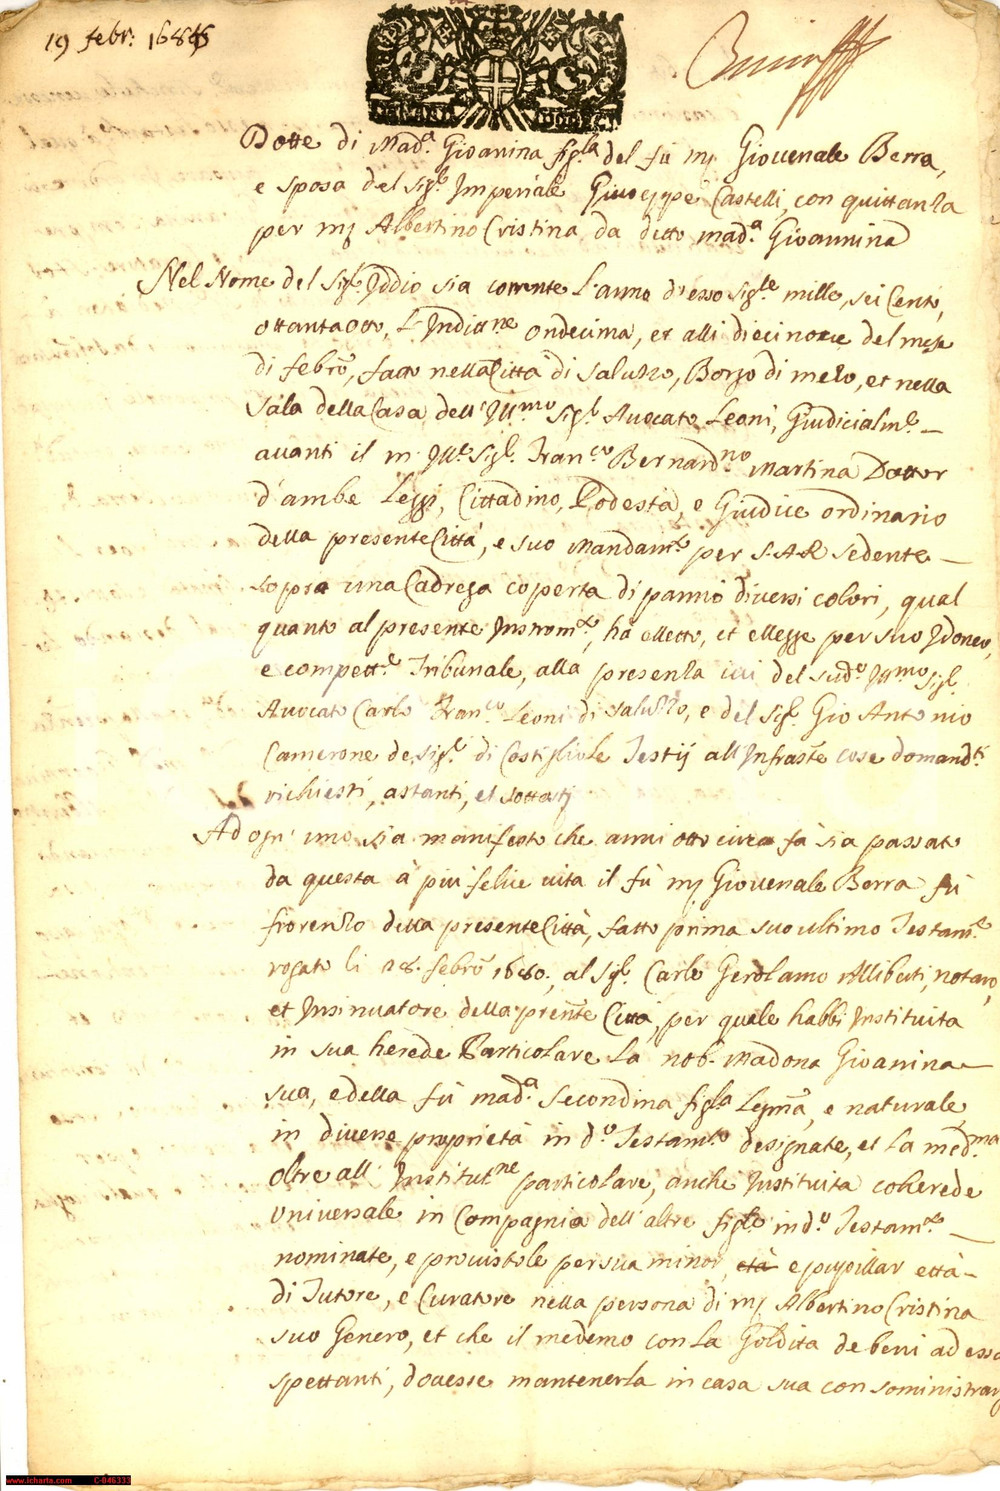 19 febr: 1688
Dotte di Mad.a Gioanina figl.a del fu mj Giouenale Berra,
e sposa del sig.r Imperiale Giuseppe Castelli, con quittanza
per mj Albertino Cristina da ditto mad.a Gioannina
Nel Nome del Sig.r Iddio sia corrente l'anno d'esso sig.re mille, sei Cento,
ottantaotto, l'Indit.ne ondecima, et alli diecinoue del mese
di febro, fatto nella Città di Saluzzo, Borgo di mezo, et nella
Sala della Casa dell'Ill.mo Sig.r Auocato Leoni, Giudicialm.e
auanti il m. Ill.e Sig.r Fran.co Bernard.no Martina Dottor
d'ambe Leggi, Cittadino, Podestà, e Giudice ordinario
della presente Città, e suo Mandam.to per S.A.R sedente
sopra una Cadrega coperta di panno diuersi colori, qual
quanto al presente Instrom.to, ha elletto, et ellegge per suo Idoneo,
e compett.e Tribunale, alla presenza iui del sud.o Ill.mo sig.r
Auocato Carlo Fran.co Leoni di Saluzzo, e del sig.r Gio Antonio
Camerone de sig.ri di Costigliole Testij all'Infraste cose domand.ti
richiesti, astanti, et sottotti
Ad ogn' uno sia manifesto che anni otto circa fà sia passato
da questa à piu felice uita il fù mj Giouenale Berra fù
fiorenzo della presente Città, fatto prima suo ultimo Testam.to
rogato li 28. febro 1680. al sig.r Carlo Gerolamo Alliberti, notaro,
et Insinuatore della prente Città, per quale habbi Instituita
in sua herede Particolare la nob. Madona Gioanina
sua, e della fù mad.a Secondina figl.a legma, e naturale
in diuerse proprietà in d.o Testam.to designate, et la med.ma
oltre all' Institut.ne particolare, anche Instituita coherede
uniuersale in Compagnia dell'altre figle in d.o Testam.to
nominate, e prouistole per sua minor, età e pupillar ettà
di Tutore, e Curatore nella persona di mj Albertino Cristina
suo Genero, et che il medemo con la Goldita de beni ad essa
spettanti, douesse mantenerla in casa sua con soministrar
www.icharta.com C-046333